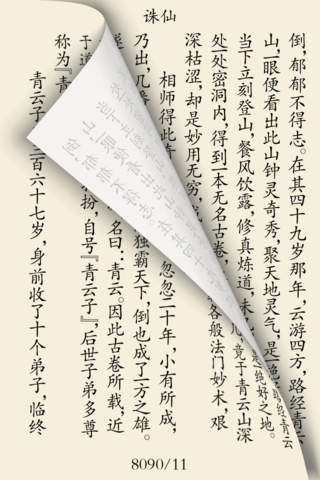 诛仙
倒，郁郁不得志。在其四十九岁那年，云游四方，路经青云
山，一眼便看出此山钟灵奇秀，聚天地灵气，是一绝好之地。
当下立刻登山，餐风饮露，修真炼道，未 竟于青云山深
处一处密洞内，得到一本无名古卷， 各般法门妙术，艰
深枯涩，却是妙用无穷，
相师得此 忽忽二十年，小有所成，
乃出，几番 独霸天下，倒也成了一方之雄。
遂 名曰：青云。因此古卷所载，近
于道 扮，自号『青云子』，后世子弟多尊
称为『青
青云子 三百六十七岁，身前收了十个弟子，临终
8090/11